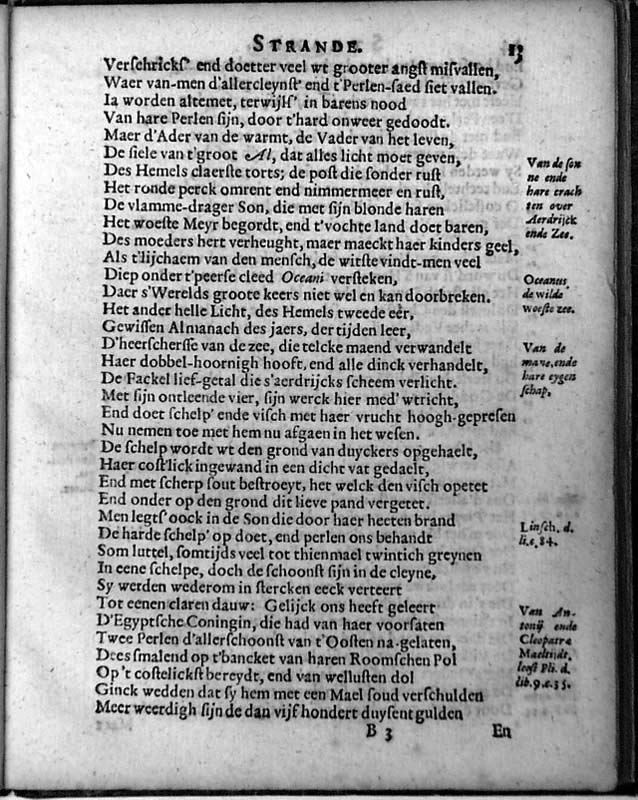 STRANDE. 13
Verschrickt' end doetter veel wt grooter angst misvallen,
Waer van-men d'allercleynst' end t'Perlen-saed siet vallen.
Ia worden altemet, terwijls' in barens nood
Van hare Perlen sijn, door t'hard onweer gedoodt.
Maer d'Ader van de warmt, de Vader van het leven,
De siele van t'groot Al, dat alles licht moet geven,
Des Hemels claerste torts; de post die sonder rust
Het ronde perck omrent end nimmermeer en rust,
De vlamme-drager Son, die met sijn blonde haren
Het woeste Meyr begordt, end t'vochte land doet baren,
Des moeders hert verheught, maer maeckt haer kinders geel,
Als t'lijchaem van den mensch, de witste vindt-men veel
Diep onder t'peerse cleed Oceani versteken,
Daer s'Werelds groote keers niet wel en kan doorbreken.
Het ander helle Licht, des Hemels tweede eêr,
Gewissen Almanach des jaers, der tijden leer,
D'heerschersse van de zee, die telcke maend verwandelt
Haer dobbel-hoornigh hooft, end alle dinck verhandelt,
De Fackel lief-getal die s'aerdrijcks scheem verlicht.
Met sijn ontleende vier, sijn werck hier med' wtricht,
End doet schelp' ende visch met haer vrucht hoogh-gepresen
Nu nemen toe met hem nu afgaen in het wesen.
De schelp wordt wt den grond van duyckers opgehaelt,
Haer cost'lick ingewand in een dicht vat gedaelt,
End met scherp sout bestroeyt, het welck den visch opetet
End onder op den grond dit lieve pand vergetet.
Men legts' oock in de Son die door haer heeten brand
De harde schelp' op doet, end perlen ons behandt
Som luttel, somtijds veel tot thienmael twintich greynen
In eene schelpe, doch de schoonst sijn in de cleyne,
Sy werden wederom in stercken eeck verteert
Tot eenen claren dauw: Gelijck ons heeft geleert
D'Egyptsche Coningin, die had van haer voorsaten
Twee Perlen d'allerschoonst van t'Oosten na-gelaten,
Dees smalend op t'bancket van haren Roomschen Pol
Op 't costelickst bereydt, end van wellusten dol
Ginck wedden dat sy hem met een Mael soud verschulden
Meer weerdigh sijnde dan vijf hondert duysent gulden
B 3 En
Van de son
ne ende
hare crach
ten over
Aerdrijck
ende Zee.
Oceanus
de wilde
woeste zee.
Van de
mane, ende
hare eygen
schap.
Linsch. d.
li.c. 84.
Van An-
tonij ende
Cleopatra
Maeltijdt,
leest Pli. d.
lib. 9. c. 35.